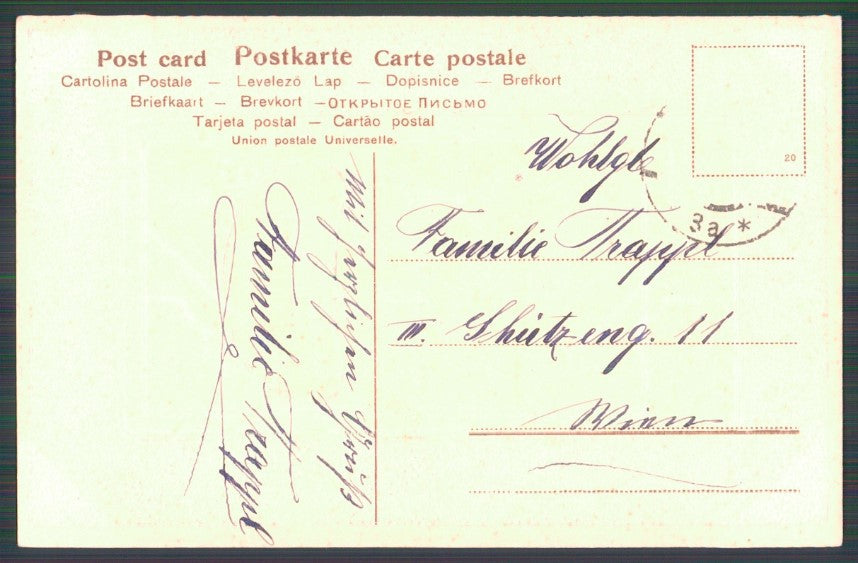 Post card Postkarte Carte postale
Cartolina Postale — Levelező Lap — Dopisnice — Brefkort
Briefkaart — Brevkort — Открытое Письмо
Tarjeta postal — Cartão postal
Union postale Universelle.
20
3a *
Wohlgb
Familie Trappl
III. Shützeng. 11
Wien
Mit herzlichen Grüß
Familie Trappl